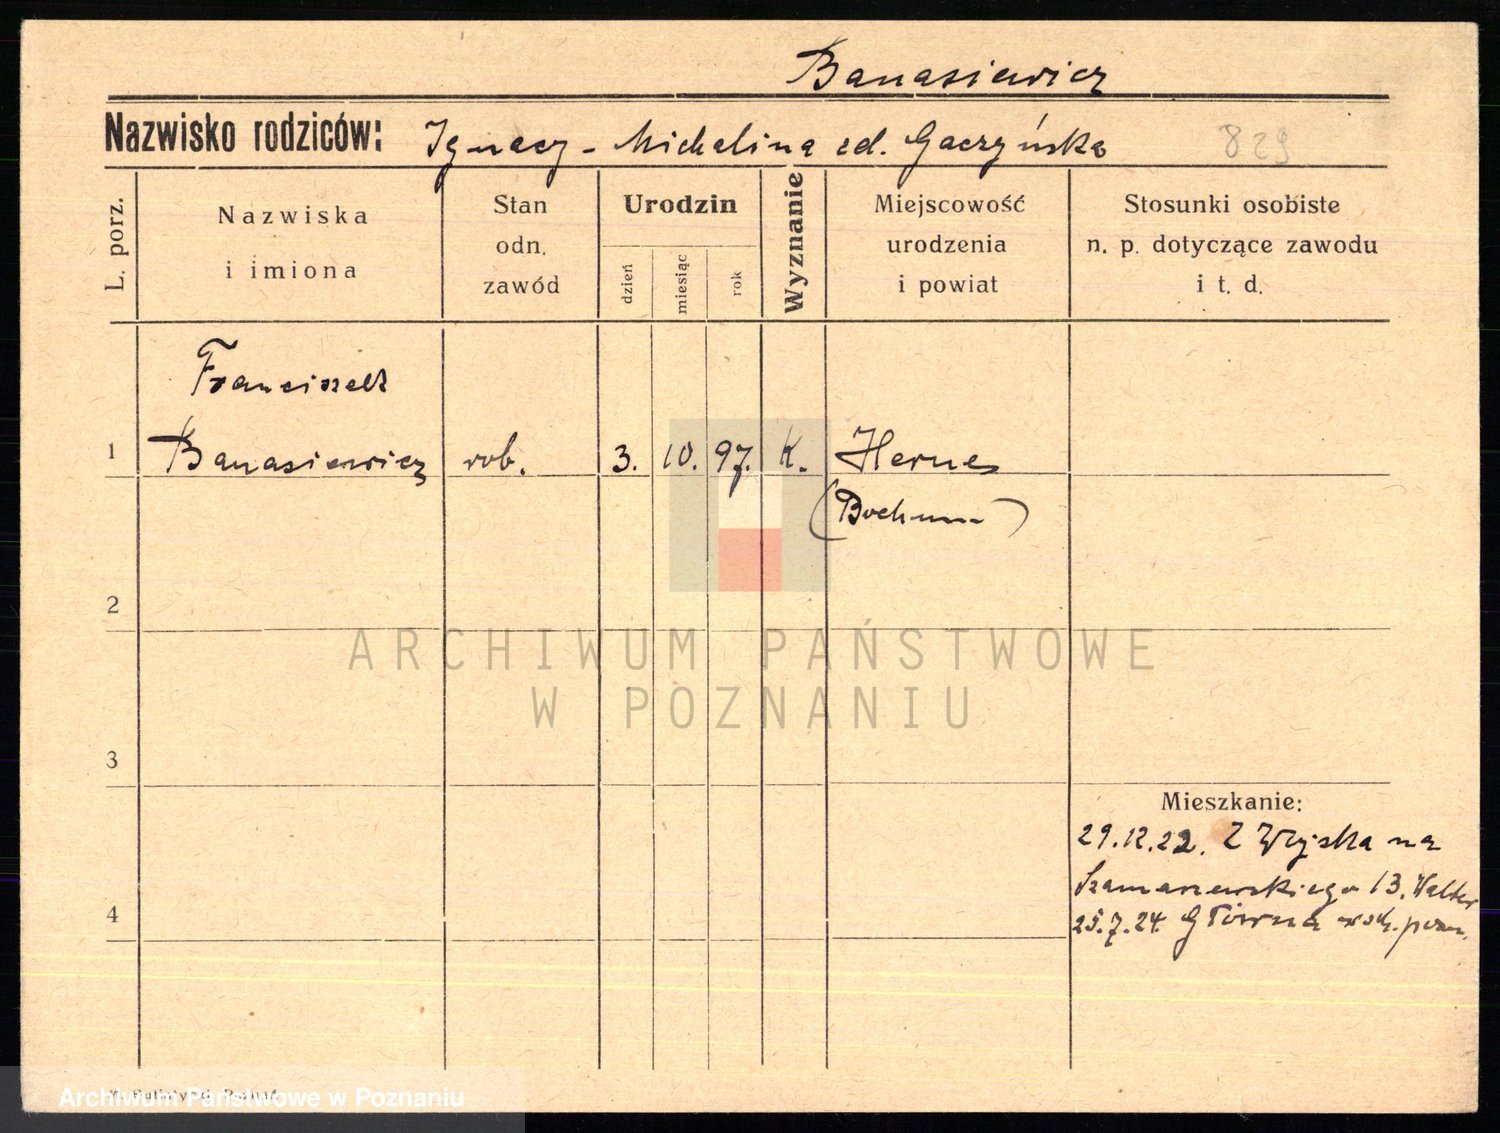 Banasiewicz
Nazwisko rodziców: Ignacy - Michalina zd. Gaczyńska 829
L. porz.
Nazwiska
i imiona
Stan
odn.
zawód
Urodzin
dzień
miesiąc
rok
Wyznanie
Miejscowość
urodzenia
i powiat
Stosunki osobiste
n. p. dotyczące zawodu
i t. d.
Franciszek
1 Banasiewicz rob. 3. 10. 97. K. Hernes
(Bochum)
2
ARCHIWUM PAŃSTWOWE
W POZNANIU
3
Mieszkanie:
29.12.22. Z Wojska na
Szamarzewskiego 13. Walter
4
25.7.24. Główna wsch. pozn.
Archiwum Państwowe w Poznaniu